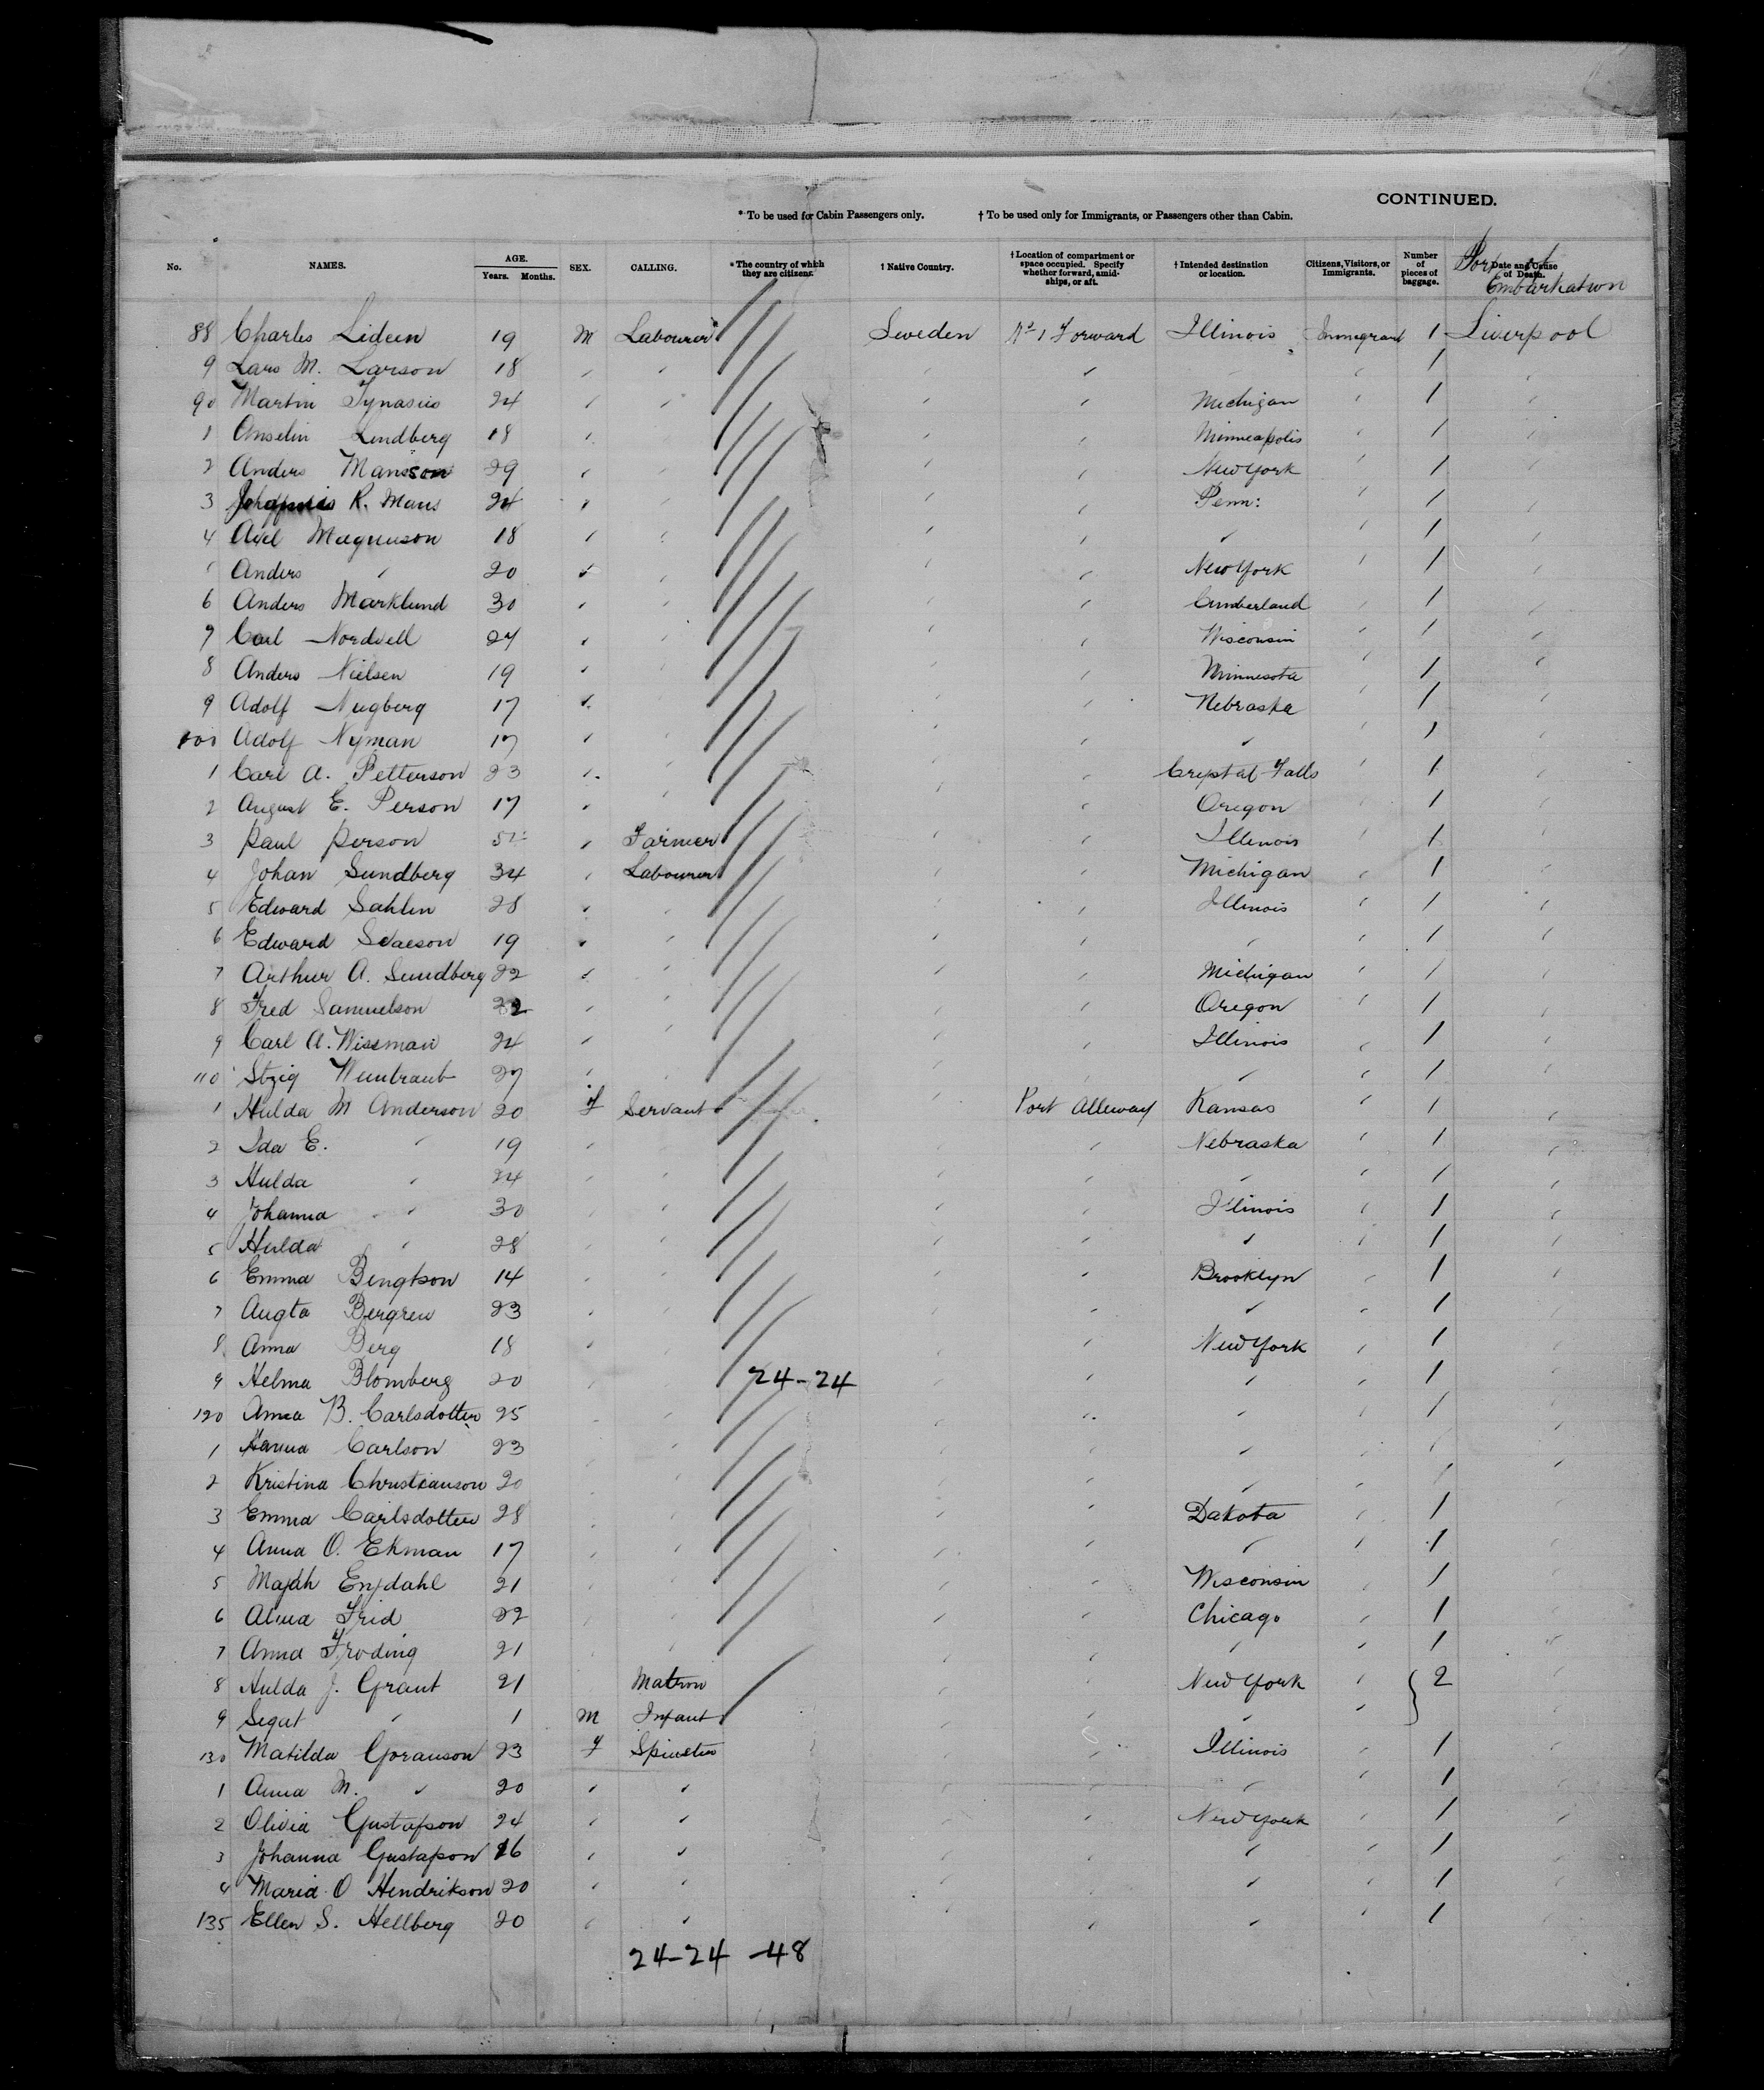 CONTINUED.
* To be used for Cabin Passengers only. † To be used only for Immigrants, or Passengers other than Cabin.
No. NAMES. AGE. Years. Months. SEX. CALLING. * The country of which they are citizens. † Native Country. † Location of compartment or space occupied. Specify whether forward, amidships, or aft. † Intended destination or location. Citizens, Visitors, or Immigrants. Number of pieces of baggage. Date and Cause of Death. Port of Embarkation
88 Charles Lideen 19 M Labourer Sweden No 1 Forward Illinois Immigrant 1 Liverpool
9 Lars M. Larson 18 " " " " " " 1 "
90 Martin 24 " " " " Michigan " 1 "
1 Anselin Lindberg 18 " " " Minneapolis " 1 "
2 Anders Mansson 29 " " " " New York " 1 "
3 R. Mans 24 " " " " Penn: " 1 "
4 Axel Magnuson 18 " " " " " " 1 "
" Anders " 20 " " " " New York " 1 "
6 Anders Marklund 30 " " " " Cumberland " 1 "
7 Carl Nordvell 27 " " " " Wisconsin " 1 "
8 Anders Nielsen 19 " " " " Minnesota " 1 "
9 Adolf Nygberg 17 " " " " Nebraska " 1 "
100 Adolf Nyman 17 " " " " " " 1 "
1 Carl A. Petterson 23 " " " " Crystal Falls " 1 "
2 August E. Person 17 " " " " Oregon " 1 "
3 Paul Person " Farmer " " Illinois " 1 "
4 Johan Sundberg 34 " Labourer " " Michigan " 1 "
5 Edward Sahlin 28 " " " " Illinois " 1 "
6 Edward 19 " " " " " " 1 "
7 Arthur A. Sundberg 22 " " " " Michigan " 1 "
8 Fred Samuelson 22 " " " " Oregon " 1 "
9 Carl A. Wissman 24 " " " " Illinois " 1 "
110 27 " " " " " " 1 "
1 Hulda M Anderson 20 F Servant " Port Alleway Kansas " 1 "
2 Ida E. " 19 " " " " Nebraska " 1 "
3 Hulda " 24 " " " " " " 1 "
4 Johanna " 30 " " " " Illinois " 1 "
5 Hulda " 28 " " " " " " 1 "
6 Emma Bengtson 14 " " " " Brooklyn " 1 "
7 Augta Bergren 23 " " " " " " 1 "
8 Anna Berg 18 " " " " New York " 1 "
9 Helma Blomberg 20 " " 24-24 " " " " 1 "
120 Anna B. Carlsdotter 25 " " " " " " 1 "
1 Hanna Carlson 23 " " " " " " "
2 Kristina Christianson 20 " " " " " " "
3 Emma Carlsdotter 28 " " " " Dakota " 1 "
4 Anna O. Ekman 17 " " " " " " 1 "
5 Majah Engdahl 21 " " " " Wisconsin " 1 "
6 Alma Frid 22 " " " " Chicago " 1 "
7 Anna Froding 21 " " " " " 1 "
8 Hulda J. Grant 21 Matron " " New York " 2 "
9 " 1 M Infant " " " " "
130 Matilda Goranson 23 F Spinster " " Illinois " 1 "
1 Anna M. " 20 " " " " " " 1 "
2 Olivia Gustafson 24 " " " " New York " 1 "
3 Johanna Gustafson 16 " " " " " " 1 "
4 Maria O Hendrikson 20 " " " " " " 1 "
135 Ellen S. Hellberg 20 " " " " " " 1 "
24-24 -48